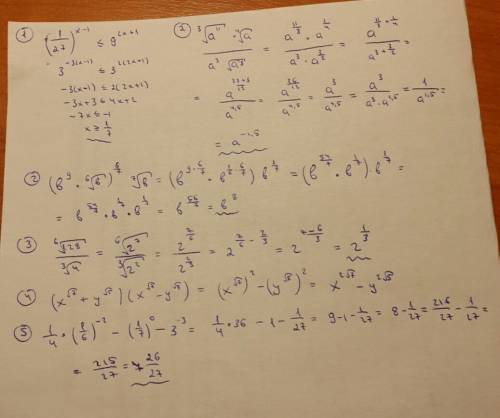 ① (1/27)^(x-1) ≤ 9^(2x+1)
3^(-3(x-1)) ≤ 3^(2(2x+1))
-3(x+1) ≤ 2(2x+1)
-3x+3 ≤ 4x+2
-7x ≤ -1
x ≥ 1/7
② (∛(a^11) · ⁴√a)/(a^3 √(a^3)) = (a^(11/3) · a^(1/4))/(a^3 · a^(3/2)) = a^(11/3+1/4)/a^(3+3/2)
= a^(/12)/a^(4,5) = a^(36/12)/a^(4,5) = a^3/a^(4,5) = a^3/(a^3 · a^(1,5)) = 1/a^(1,5) =
= a^(-1,5)
② (b^9 · ⁶√b)^(6/7) ⁷√b = (b^(9·6/7) · b^(1/6·6/7)) b^(1/7) = (b^(54/7) · b^(1/7)) · b^(1/7) =
= b^(54/7) · b^(1/7) · b^(1/7) = b^(56/7) = b^8
③ ⁶√128/∛4 = ⁶√(2^7)/∛(2^2) = 2^(7/6)/2^(2/3) = 2^(7/6-2/3) = 2^(/3) = 2^(1/3)
④ (x^√5 + y^√5)(x^√5 - y^√5) = (x^√5)^2 - (y^√5)^2 = x^(2√5) - y^(2√5)
⑤ 1/4 · (1/6)^(-2) - (1/7)^0 - 3^(-3) = 1/4 · 36 - 1 - 1/27 = 9-1-1/27 = 8-1/27 = 216/27 - 1/27 =
= 215/27 = 7 26/27